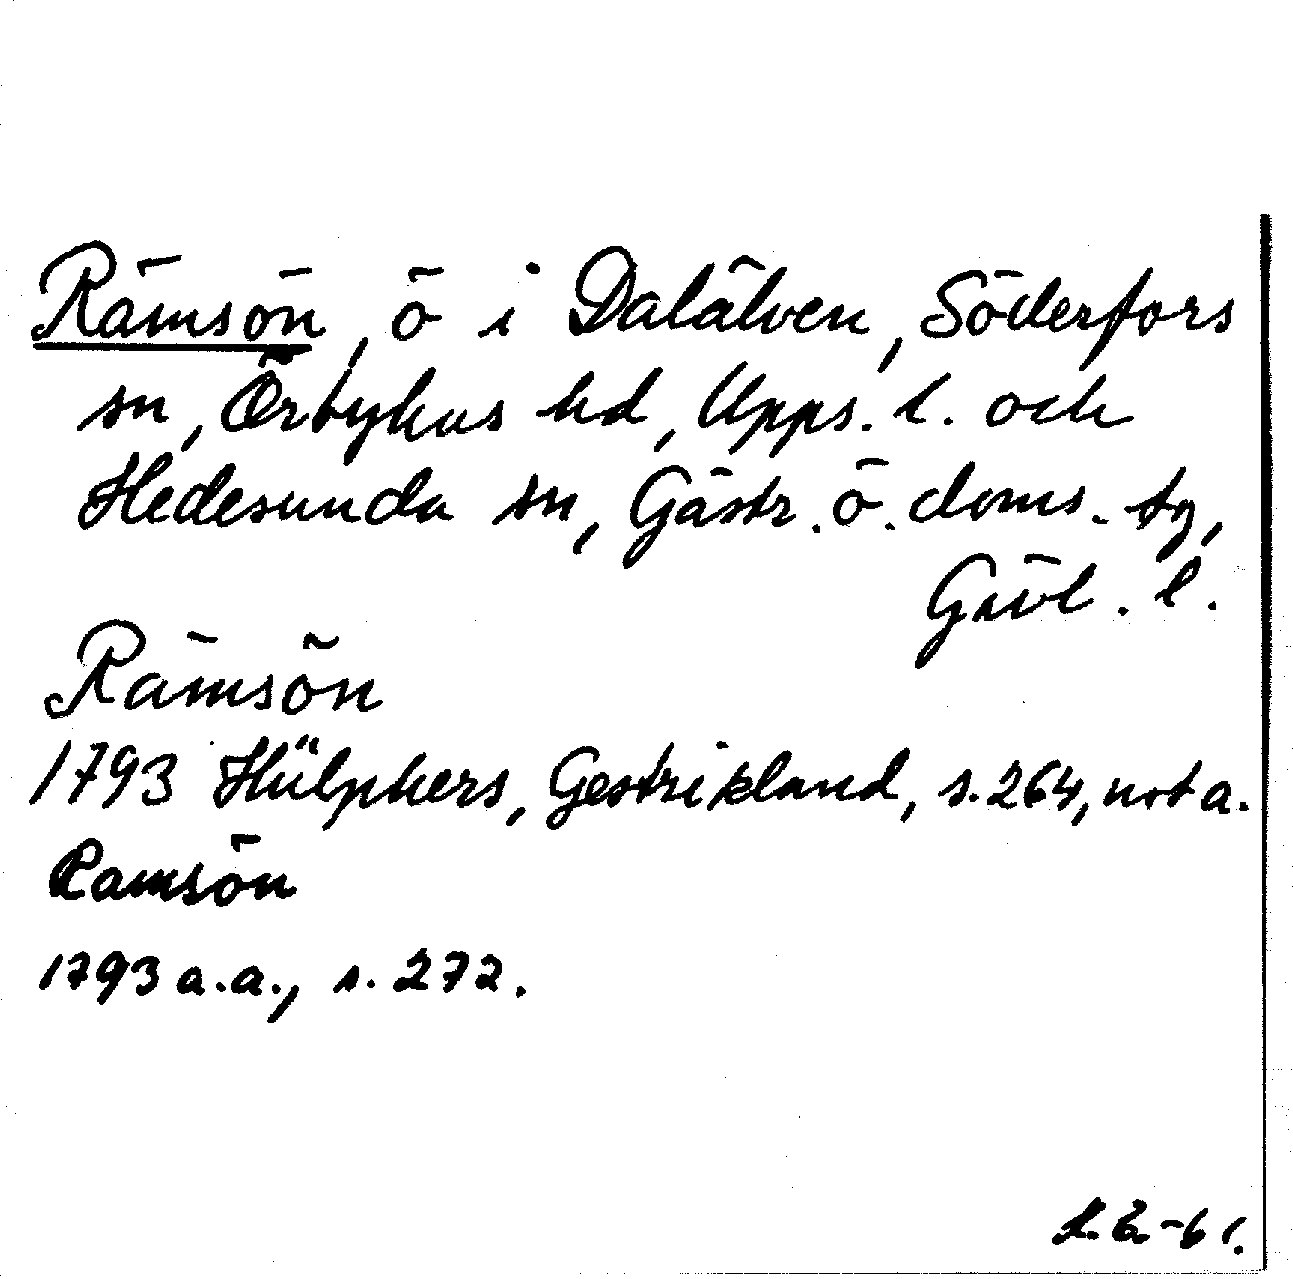 Rämsön, ö i Dalälven, Söderfors
sn, Örbyhus hd, Upps. l. och
Hedesunda sn, Gästr. ö. doms. tg,
Gävl. l.
Rämsön
1793 Hülphers, Gestrikland, s. 264, not a.
Ramsön
1793 a.a., s. 272.
-61.